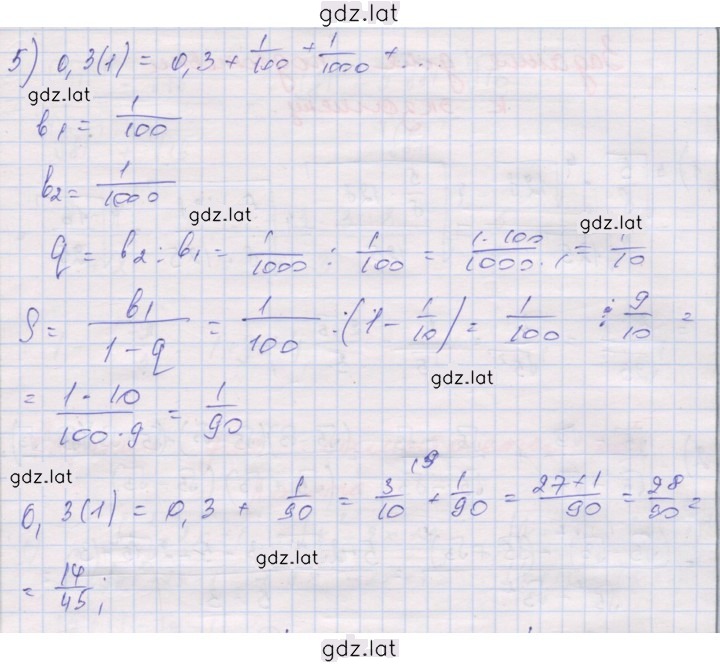 gdz.lat
5) 0,3(1) = 0,3 + 1/100 + 1/1000 + ...
gdz.lat
b1 = 1/100
b2 = 1/1000
gdz.lat
gdz.lat
q = b2 : b1 = 1/1000 : 1/100 = 1·100/1000·1 = 1/10
S = b1/(1-q) = 1/100 : (1 - 1/10) = 1/100 : 9/10 =
gdz.lat
= 1·10/100·9 = 1/90
gdz.lat
0,3(1) = 0,3 + 1/90 = 3/10 (9 + 1/90 = 27+1/90 = 28/90 =
gdz.lat
= 14/45;
gdz.lat